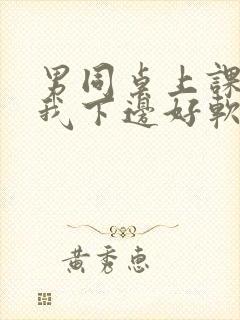 男同桌上課
我下邊好軟
黃秀惠